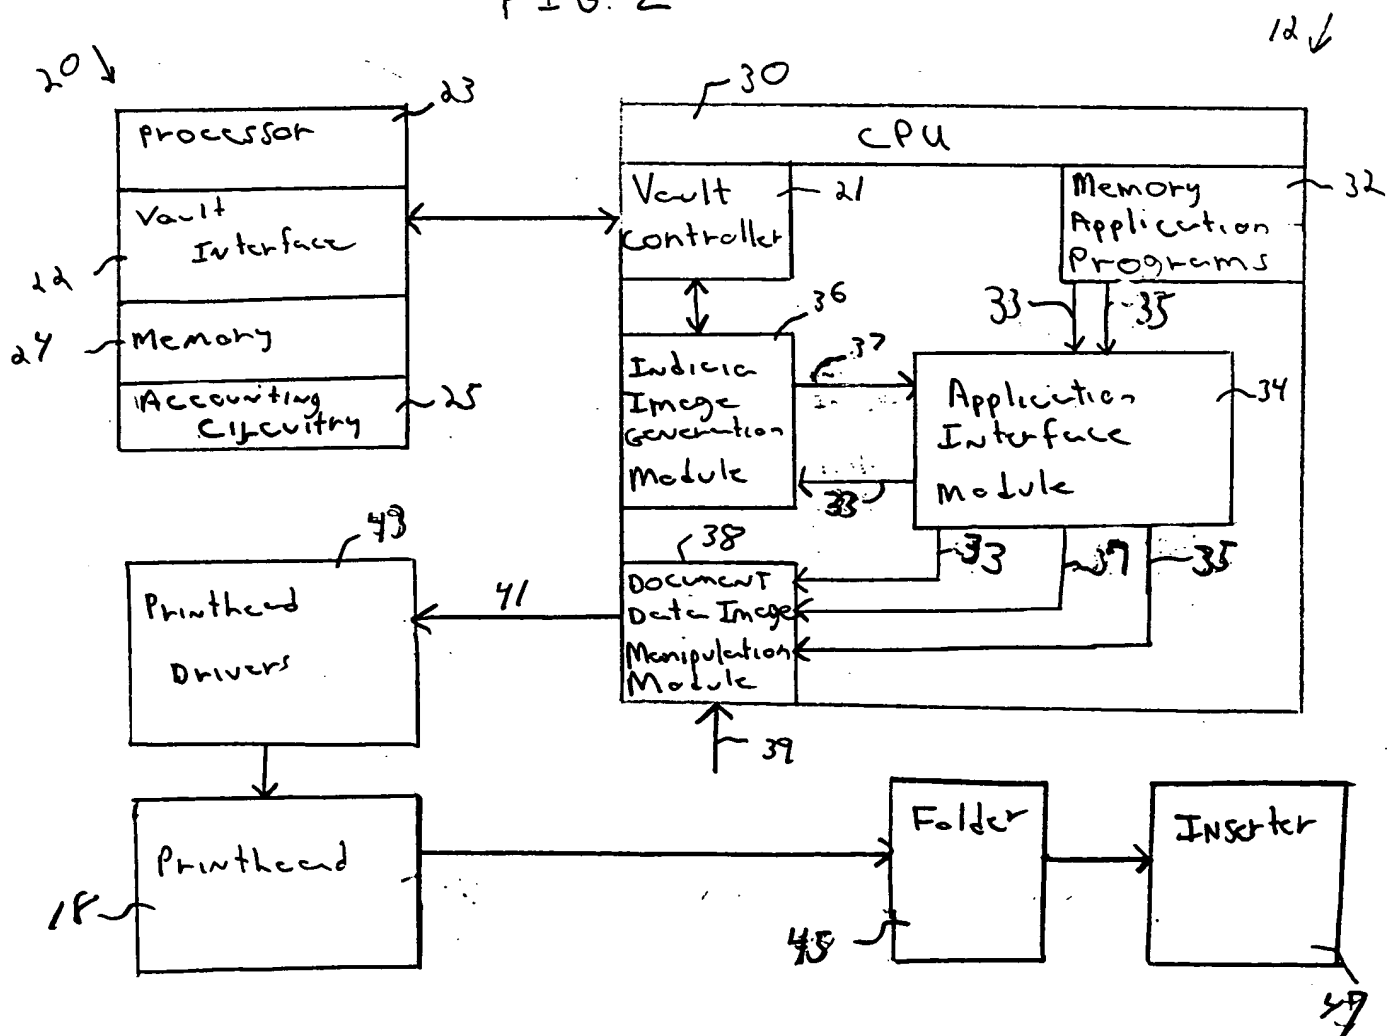 FIG. 2
20
12
23
Processor
Vault
Interface
22
24
Memory
Accounting
Circuitry
25
30
CPU
Vault
Controller
21
Memory
Application
Programs
32
33
35
36
Indicia
Image
Generation
Module
37
33
Application
Interface
Module
34
38
Document
Data Image
Manipulation
Module
33
37
35
39
41
43
Printhead
Drivers
Printhead
18
Folder
45
Inserter
47